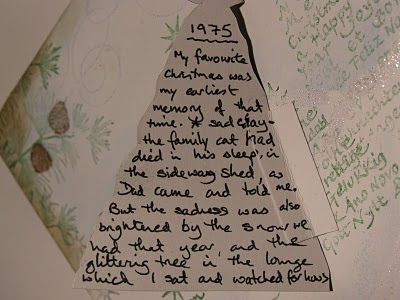 1975
My favourite
Christmas was
my earliest
memory of that
time. * sad day -
the family cat had
died in his sleep, in
the sideway shed, as
Dad came and told me.
But the sadness was also
brightened by the snow we
had that year, and the
glittering tree in the lounge
which I sat and watched for hours
Christmas
a Happy
et Bon
Feliz
Ano Novo